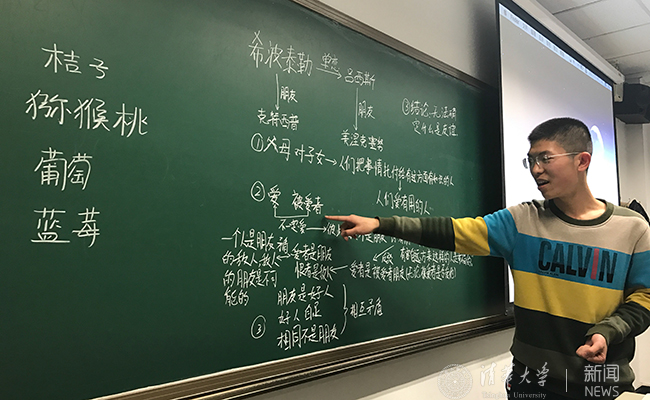 桔子
猕猴桃
葡萄
蓝莓
希波泰勒 单恋 吕西斯
朋友 朋友
克特西普 美涅克塞努
③结论:无法确
定什么是友谊
①父母对子女→人们把事情托付给有这方面有知识的人
人们爱有用的人
② 爱 被爱者
不一定爱
一个是朋友
的敌人敌人
的朋友是不可
能的
爱者是朋友
恨者是敌人
爱者是被爱者朋友
朋友是好人
好人自足
相同不是朋友
相互矛盾
③
CALVIN
清华大学
Tsinghua University
新闻
NEWS